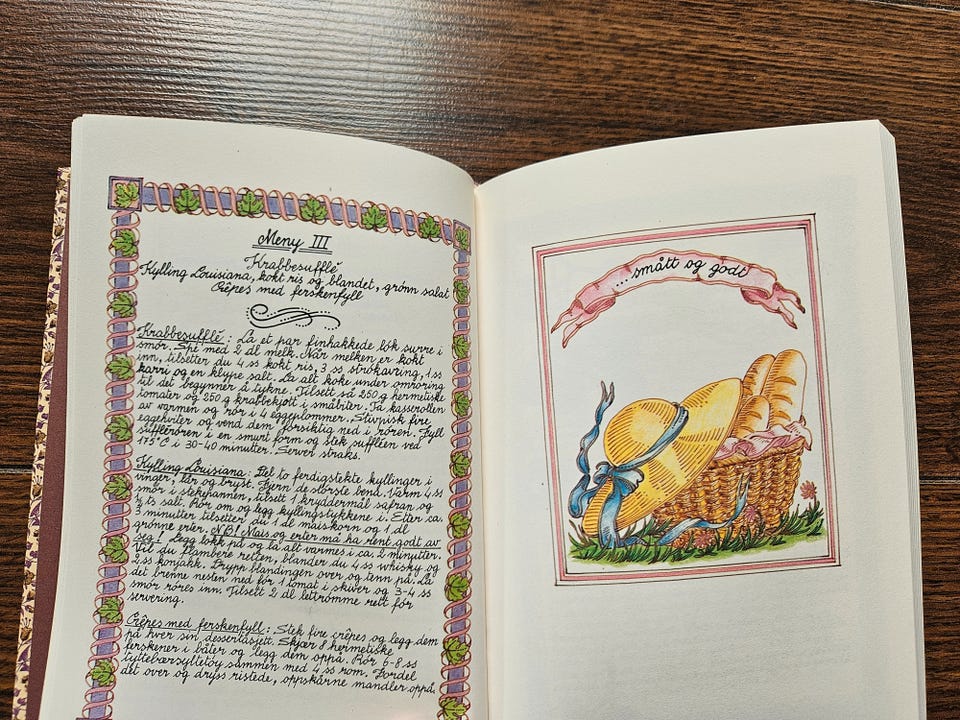 Meny III
Krabbesufflé
Kylling Louisiana, kokt ris og blandet, grønn salat
Crêpes med ferskenfyll
Krabbesufflé : La et par finhakkede løk surre i
smør. Spe med 2 dl melk. Når melken er kokt
inn, tilsetter du 4 ss kokt ris, 3 ss strøkavring, 1 ss
karri og en klype salt. La alt koke under omrøring
til det begynner å tykne. Tilsett så 250 g hermetiske
tomater og 250 g krabbekjøtt i småbiter. Ta kasserollen
av varmen og rør i 4 eggeplommer. Stivpisk fire
eggehviter og vend dem forsiktig ned i røren. Fyll
sufflérøren i en smurt form og stek suffléen ved
175°C i 30-40 minutter. Server straks.
Kylling Louisiana: Del to ferdigstekte kyllinger i
vinger, lår og bryst. Fjern de største bend. Varm 4 ss
smør i stekepannen, tilsett 1 kryddermål safran og
½ ts salt. Rør om og legg kyllingstykkene i. Etter ca.
3 minutter tilsetter du 1 dl maiskorn og 1 dl
grønne erter. NB! Mais og erter må ha rent godt av
seg! Legg lokk på og la alt varmes i ca. 2 minutter.
Vil du flambere retten, blander du 4 ss whisky og
2 ss konjakk. Drypp blandingen over og tenn på. La
det brenne nesten ned før 1 tomat i skiver og 3-4 ss
smør røres inn. Tilsett 2 dl lettrømme rett før
servering.
Crêpes med ferskenfyll : Stek fire crêpes og legg dem
på hver sin dessertasjett. Skjær 8 hermetiske
ferskener i båter og legg dem oppå. Rør 6-8 ss
tyttebærsyltetøy sammen med 4 ss rom. Fordel
det over og dryss ristede, oppskårne mandler oppå.
... smått og godt